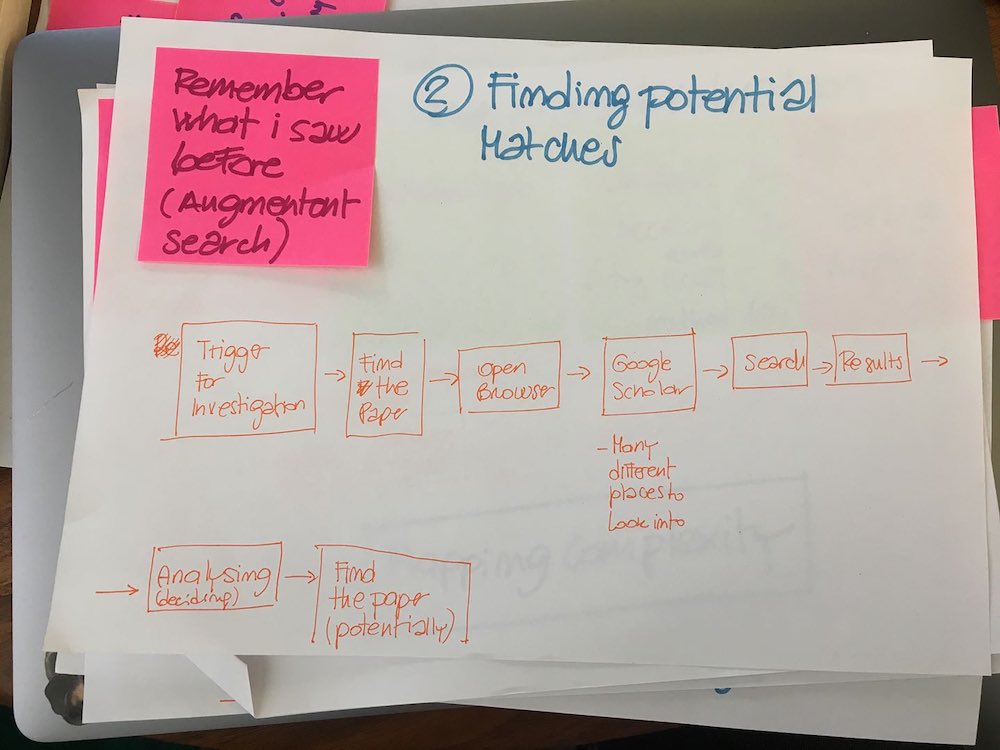 Remember
what i saw
before
(Augmentont
search)
② Finding potential
Matches
Trigger
for
investigation
Find
the
Paper
open
Browser
Google
Scholar
Search
Results
- Many
different
places to
Look into
Analysing
(deciding)
Find
the paper
(potentially)